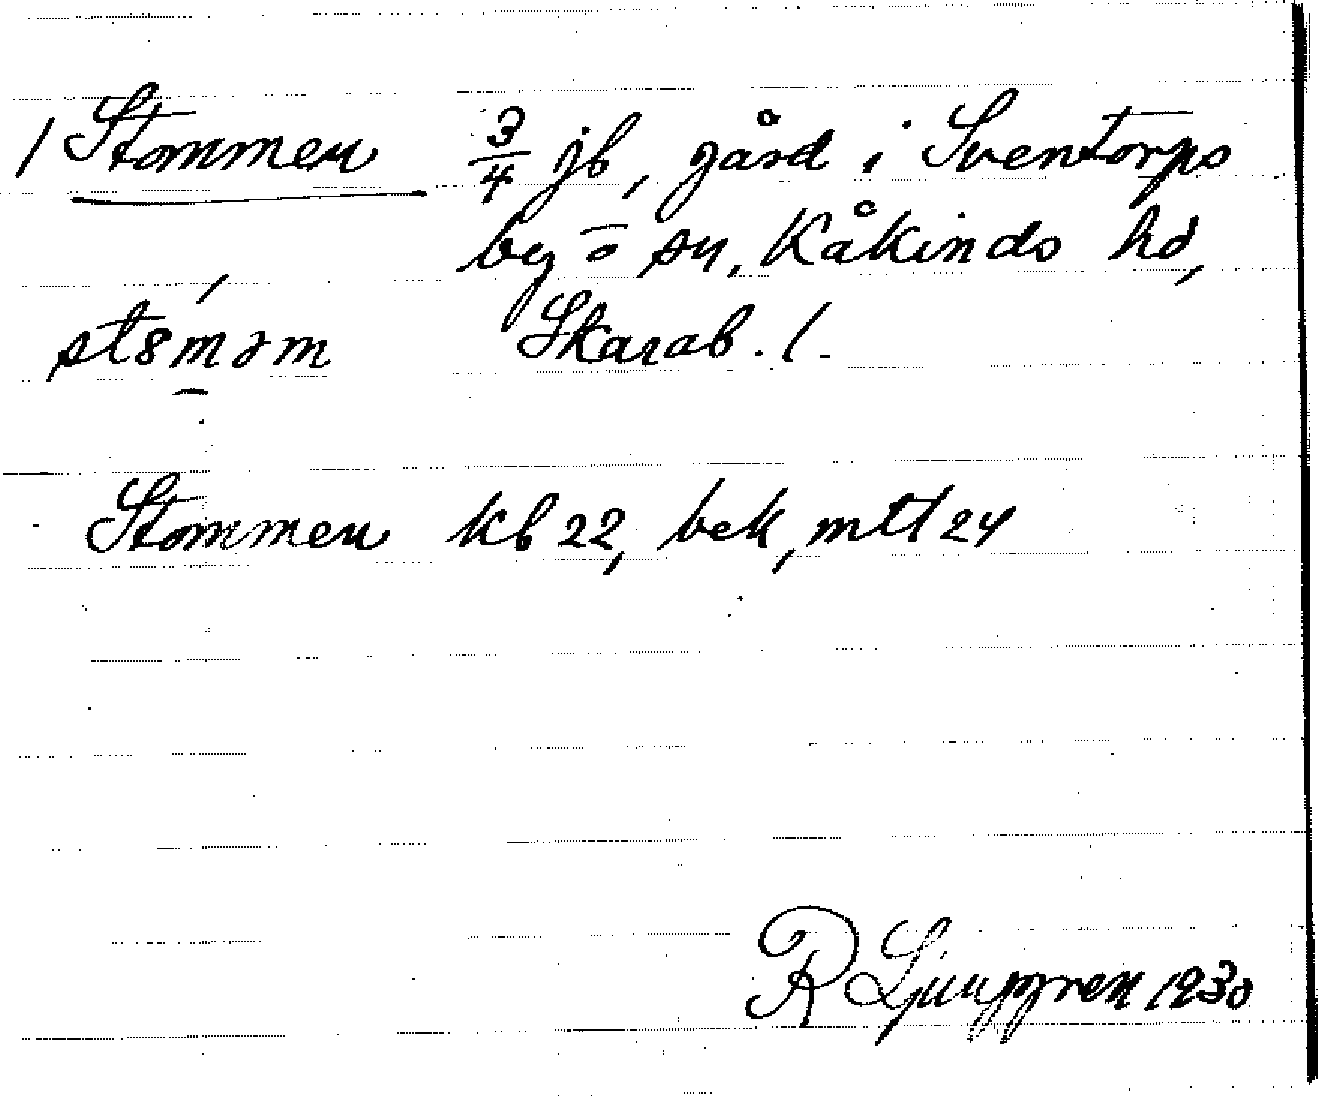 / Stommen 3/4 jb, gård i Sventorps
by o sn, Kåkinds hd,
st8məm Skarab. /.
Stommen kb 22, bek, mtl 24
R Ljunggren 1930